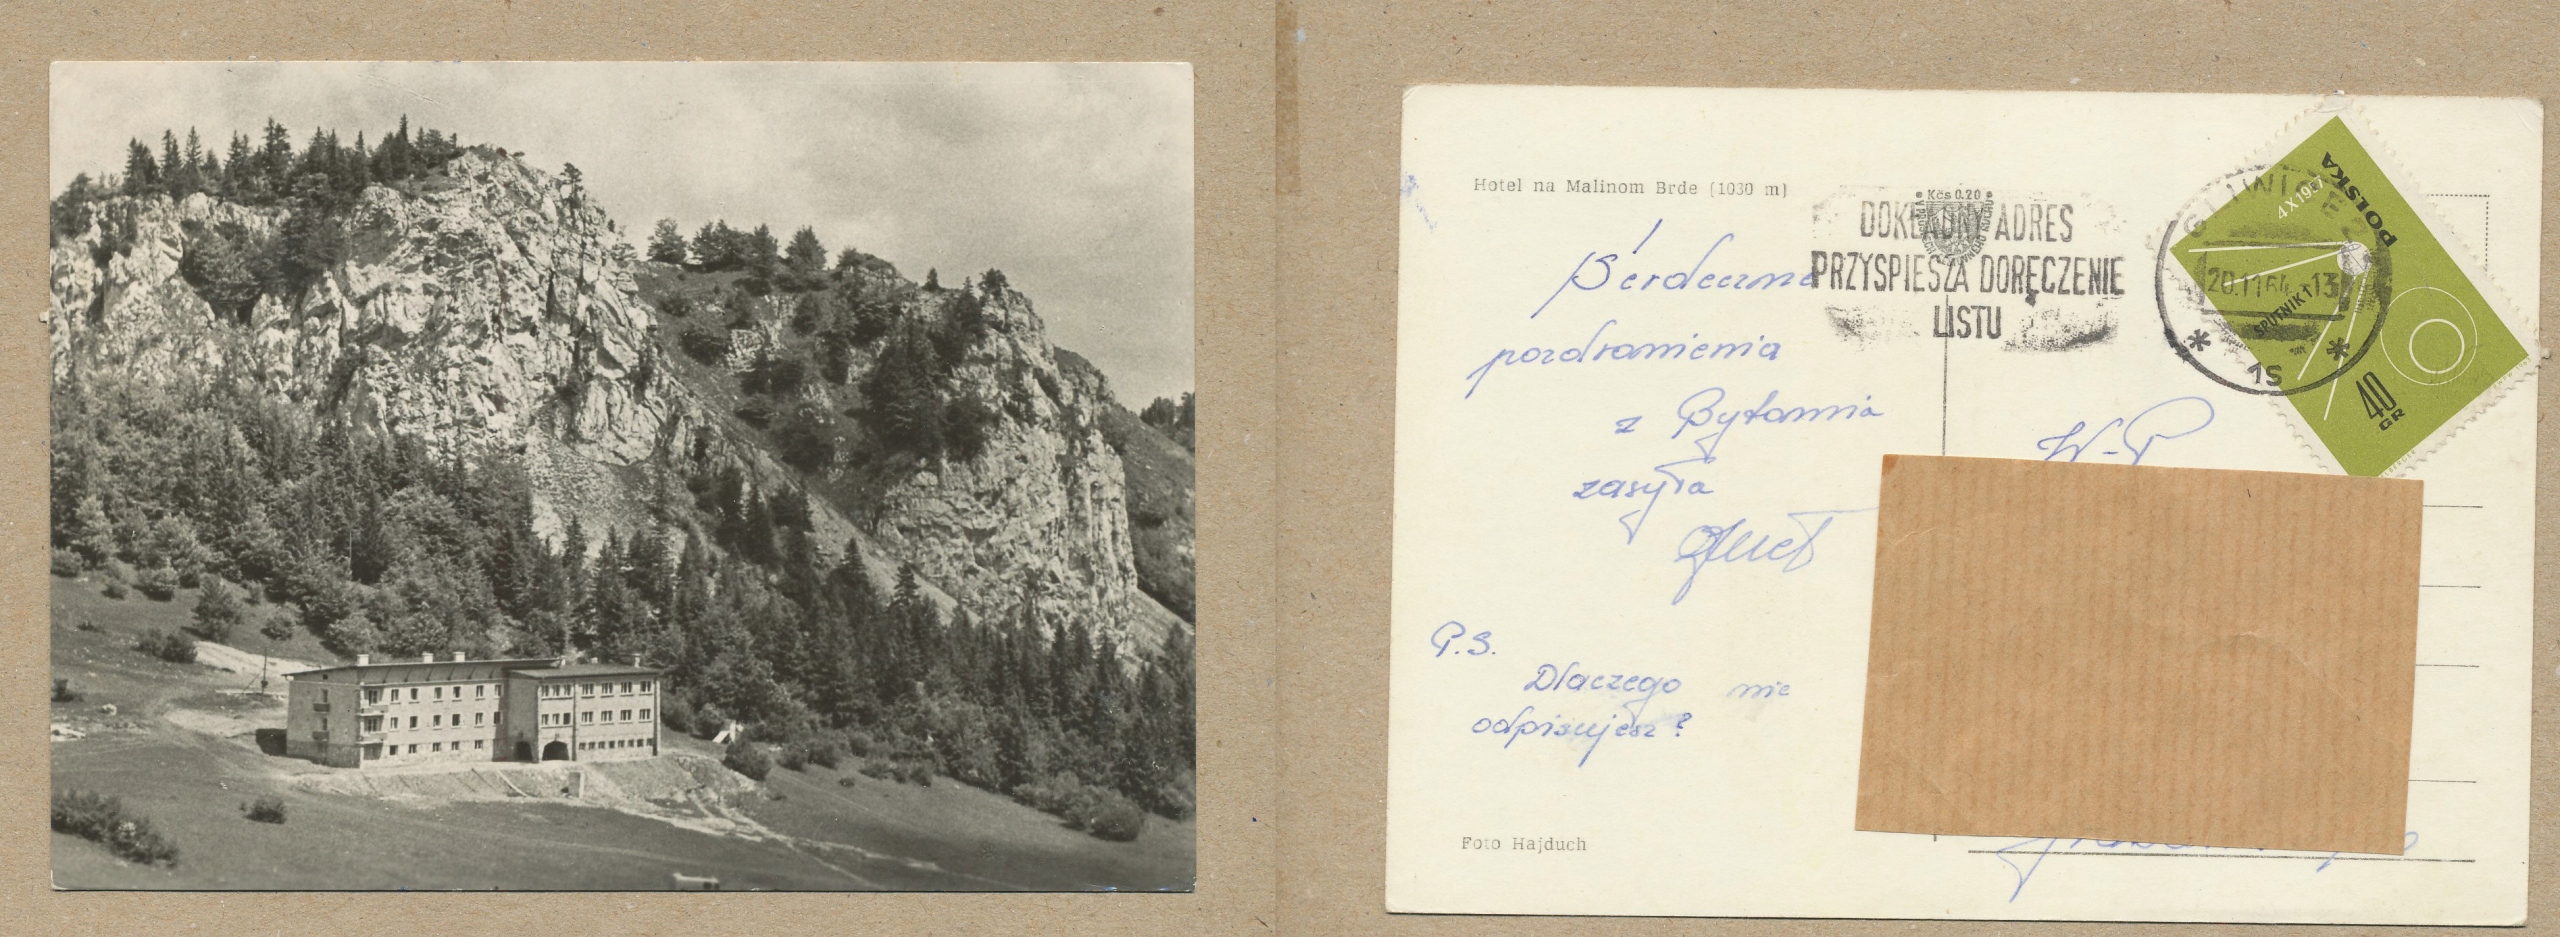 Hotel na Malinom Brde (1030 m)
Kčs 0.20
DOKŁADNY ADRES
PRZYSPIESZA DORĘCZENIE
LISTU
GLIWICE
20.11.64.-13
1S
POLSKA
4 X 1957
SPUTNIK 1
40
GR
Serdeczne
pozdrowienia
z Bytomia
zasyła
W-P
P.S.
Dlaczego nie
odpisujesz?
Foto Hajduch